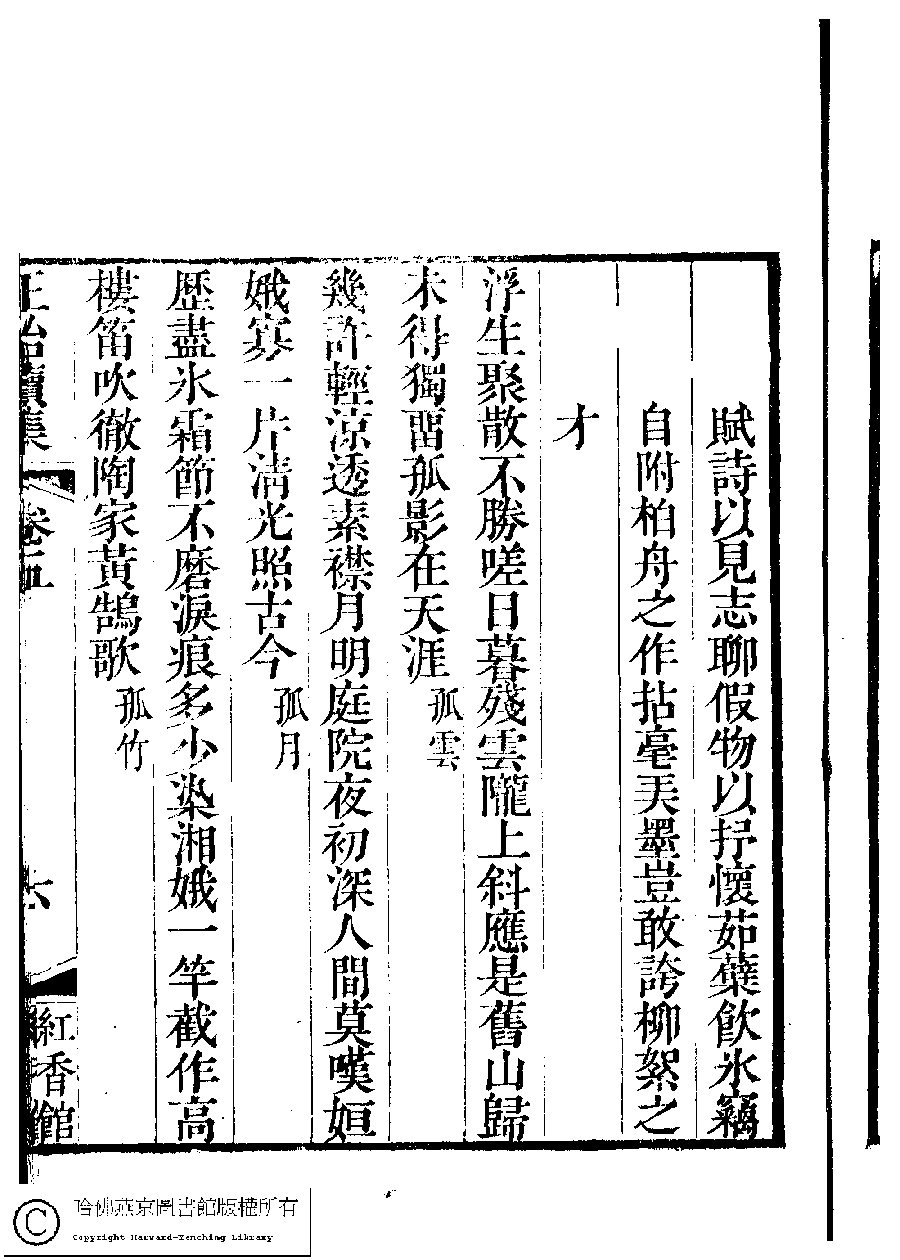 賦詩以見志聊假物以抒懷茹蘗飲氷竊
自附柏舟之作拈毫弄墨豈敢誇柳絮之
才
浮生聚散不勝嗟日暮殘雲隴上斜應是舊山歸
未得獨畱孤影在天涯孤雲
幾許輕涼透素襟月明庭院夜初深人間莫嘆姮
娥寡一片淸光照古今孤月
歷盡氷霜節不磨淚痕多少染湘娥一竿截作高
樓笛吹徹陶家黃鵠歌孤竹
續集 卷五 六 紅香館
哈佛燕京圖書館版權所有
Copyright Harvard-Yenching Library